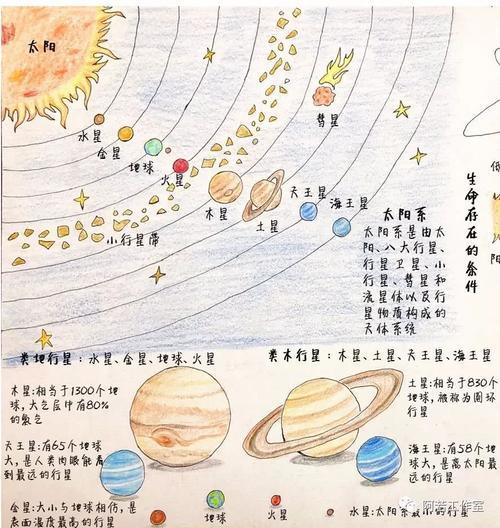 太阳
水星
金星
地球
火星
小行星带
木星
土星
彗星
天王星
海王星
太阳系
太阳系是由太
阳、八大行星、
行星卫星、小
行星、彗星和
流星体以及行
星物质构成的
天体系统
生命存在的条件
类地行星：水星、金星、地球、火星
类木行星：木星、土星、天王星、海王星
木星:相当于1300个地
球,大气层中有80%
的氢气
天王星:有65个地球
大,是人类肉眼能看
到最远的行星
金星:大小与地球相仿,是
表面温度最高的行星
地球
火星
土星:相当于830个
地球,被称为圆环
行星
海王星:有58个地
球大,是离太阳最
远的行星
水星:太阳系最小的行星
阿若工作室